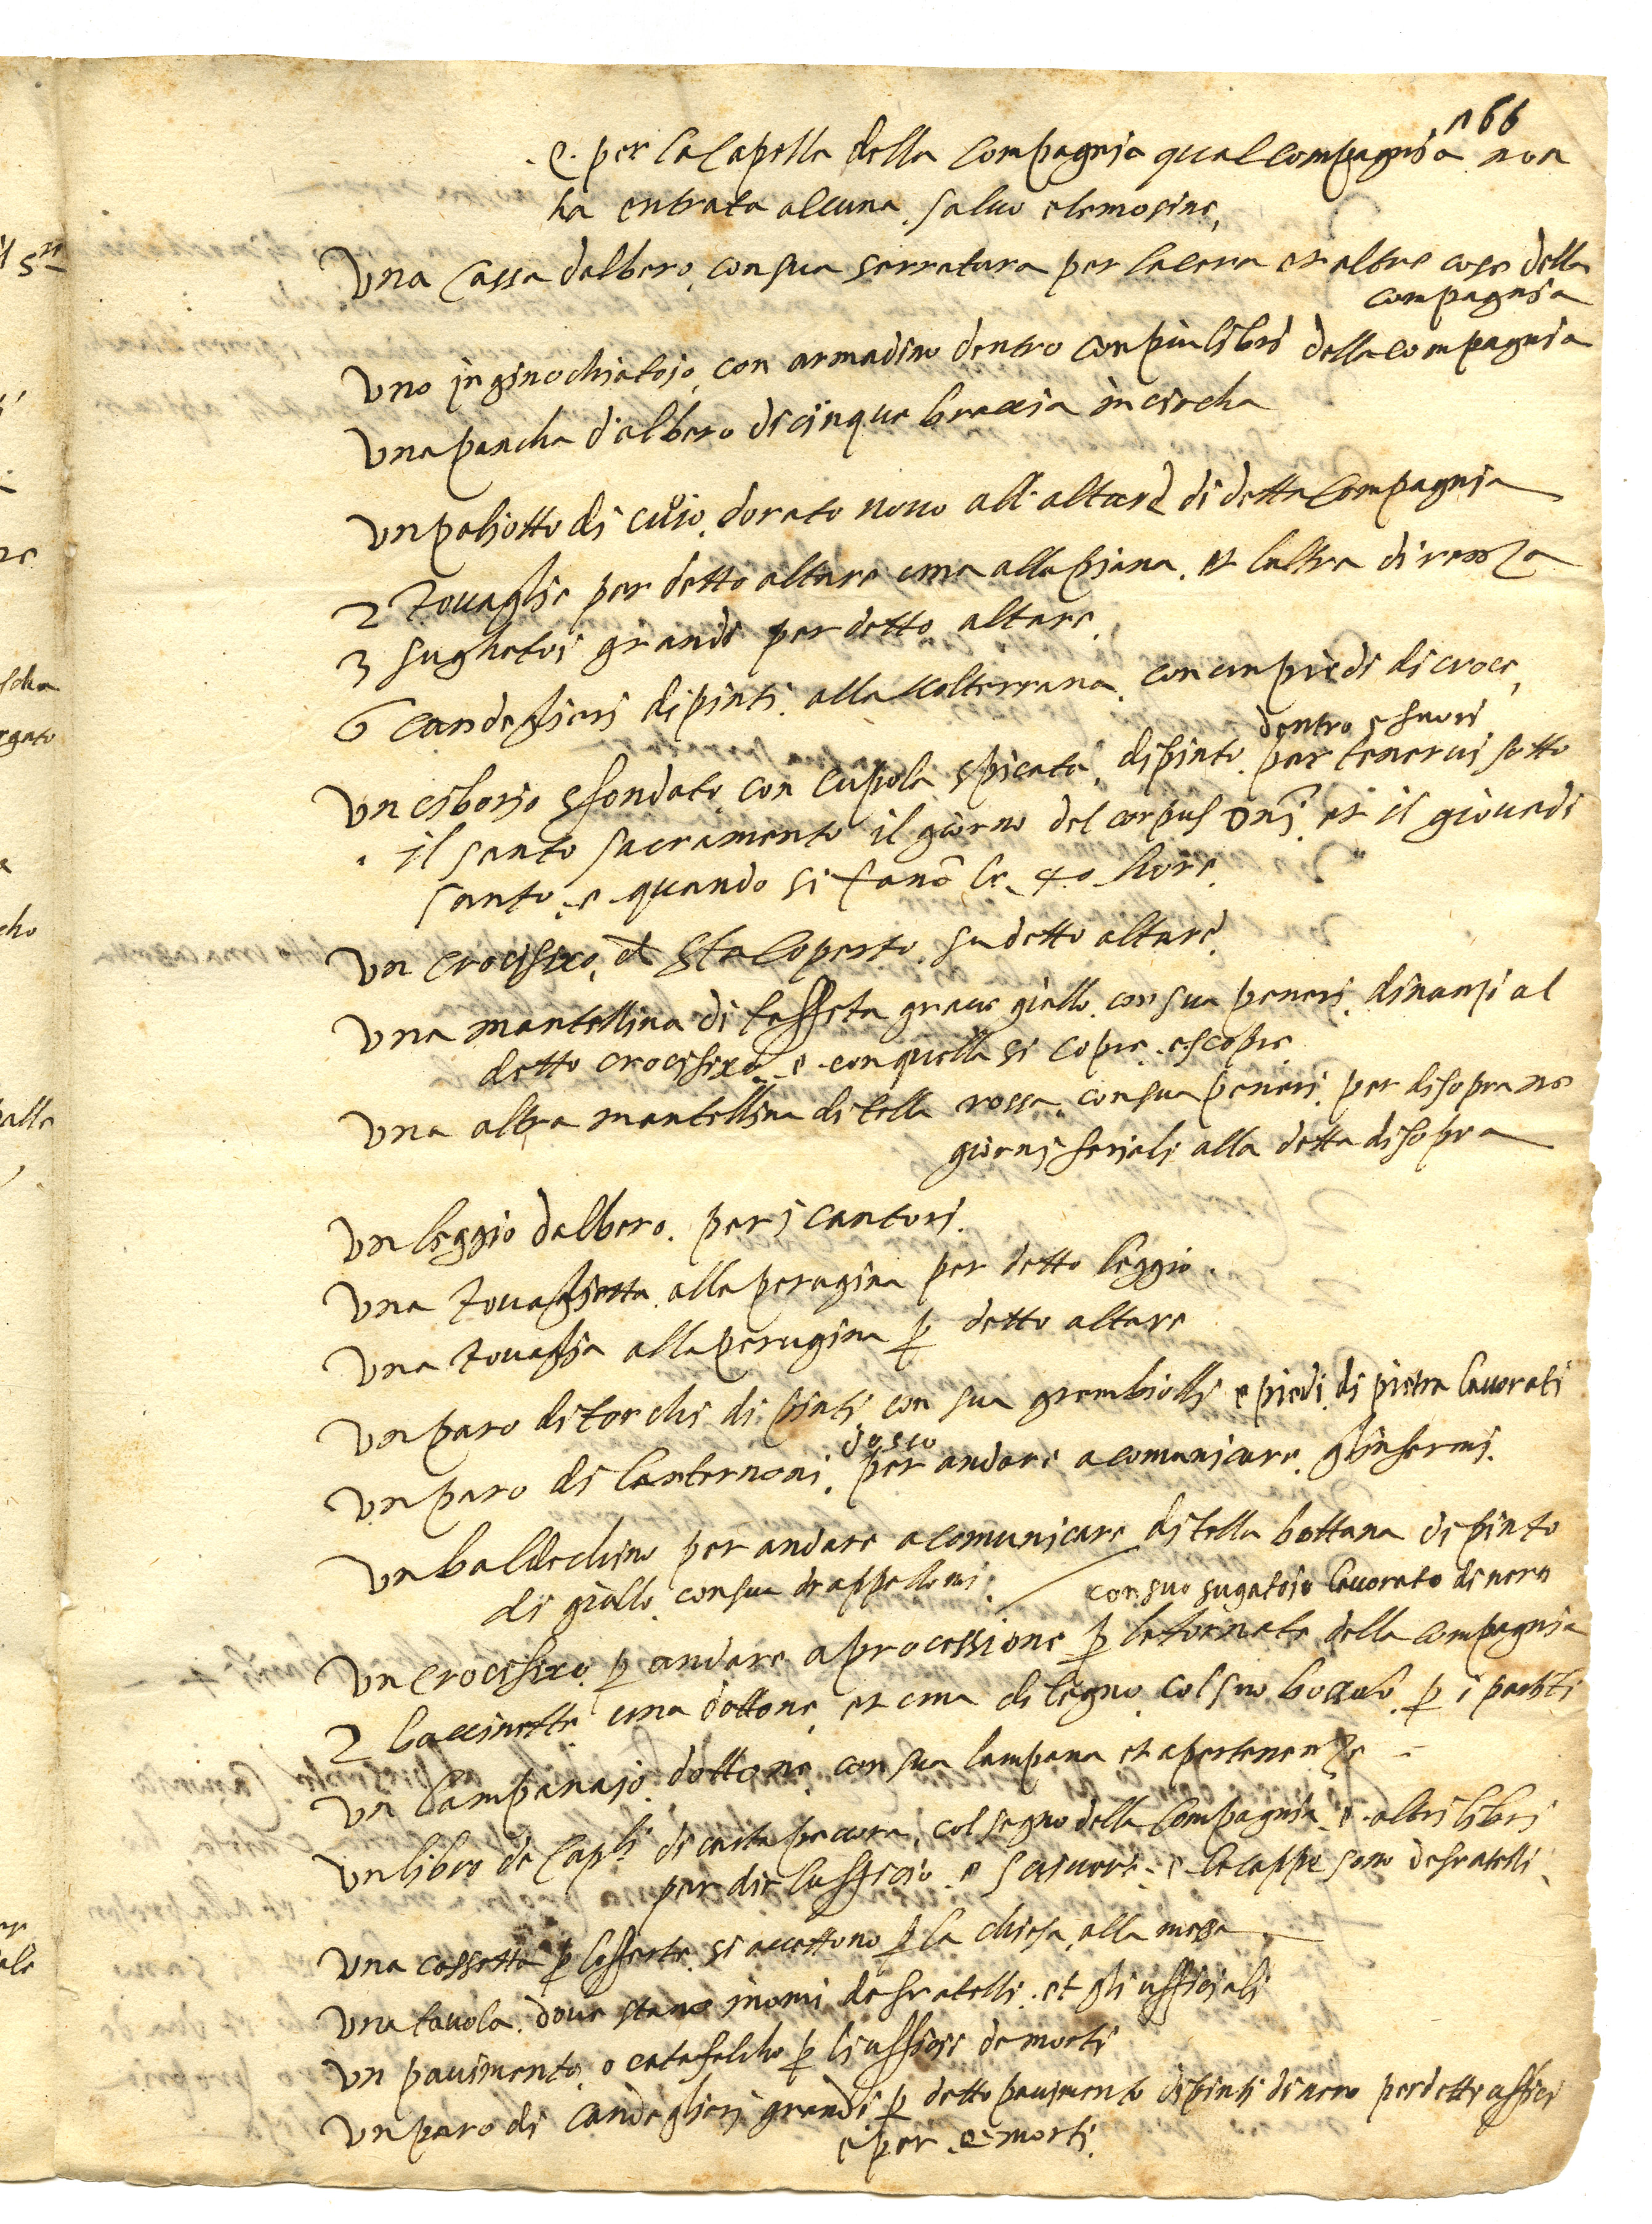 166
.e. per la Capella della Compagnia qual compagnia non
ha entrata alcuna, salvo elemosine,
Una Cassa dalbero, con sua serratura per la cera et altre cose della
compagnia
Uno inginochiatoio, con armadino dentro con piu libri della compagnia
Una pancha d'albero di cinque braccia in circha
Un paliotto di cuoio, dorato novo all'altare di detta Compagnia
2 Tovaglie per detto altare una alla piana, et laltra di renza
3 sughatoi grandi per detto altare,
6 Candeglieri dipinti, alla volterrana, con un piedi di croce,
Un ciborio sfondato, con cupola spicata, dipinto, dentro e fuori per tenervi sotto
il santo sacramento il giorno del corpus Dnĩ, et il giovedi
santo, e quando si fanō le 40 hore,
Un Crocifixo, sta coperto, su detto altare,
Una mantellina di taffeta grave giallo, con sua peneri, dinanzi al
detto crocifixo, e con quella si copre, e scopre,
Una altra mantellina di tella rossa, con sua peneri, per disopra ne
giorni feriali alla detta disopra
Un leggio dalbero, per i cantori.
Una tovaglietta alla perugina per detto leggio.
Una tovaglia alla perugina p detto altare
Un paro di torchi dipinti con sua grembiolli e piedi, di pietra lavorati
Un paro di lanternoni, dosso per andare a comunicare, glinfermi.
Un baldechino per andare a comunicare di tella bottana dipinto
di giallo, con sua drappelloni, / con suo sugatoio lavorato di nero
Un Crocifixo, p andare a processione p le tornate della compagnia
2 baccinette, una dottone, et una di legno, col suo boccalo, p i partiti
Un lampanajo, dottone, con sua lampana et apertenenze -
Un libro de Capli di carta peccora, col segno della Compagnia, e altri libri
per dir luffizio, e scrivere, e le cappe sono de fratelli.
Una cassetta p lofferte, si accettono p la chiesa, alla messa
Una tavola, dove stano i nomi de fratelli, et gli uffiziali
Un pavimento, o catafalcho p li uffizii de morti
Un paro di Candeglieri grandi, p detto pavimento dipinti di nero per detti uffizi
e per e morti.